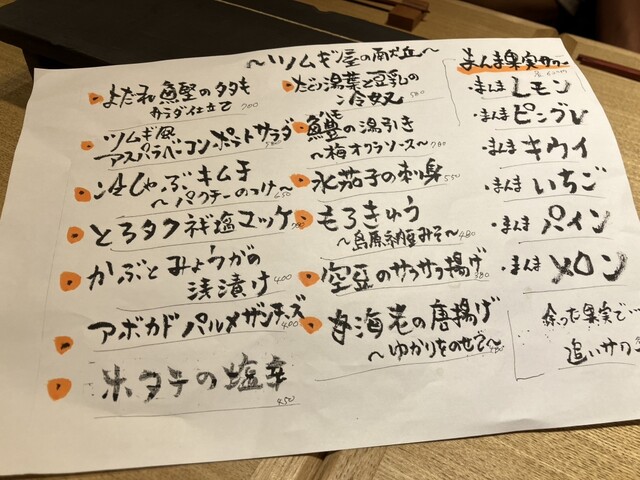 よだれ鰹のタタキ
サラダ仕立て 700
ツムギ風
アスパラベーコンポテトサラダ
冷しゃぶキムチ
〜パクチーのっけ〜 650
とろタクネギ塩ユッケ
かぶとみょうがの
浅漬け 400
アボカドパルメザンチーズ
400
ホタテの塩辛
450
〜ツムギ屋の
湯葉と豆乳の
冷奴 580
鱧の湯引き
〜梅オクラソース〜 780
水茄子の刺身 550
もろきゅう
〜島原納豆みそ〜 480
空豆のサクサク揚げ 580
海老の唐揚げ
〜ゆかりをのせて〜
まんま果実サワー
・まんまレモン
・まんまピングレ
・まんまキウイ
・まんまいちご
・まんまパイン
・まんまメロン
余った果実で…
追いサワ